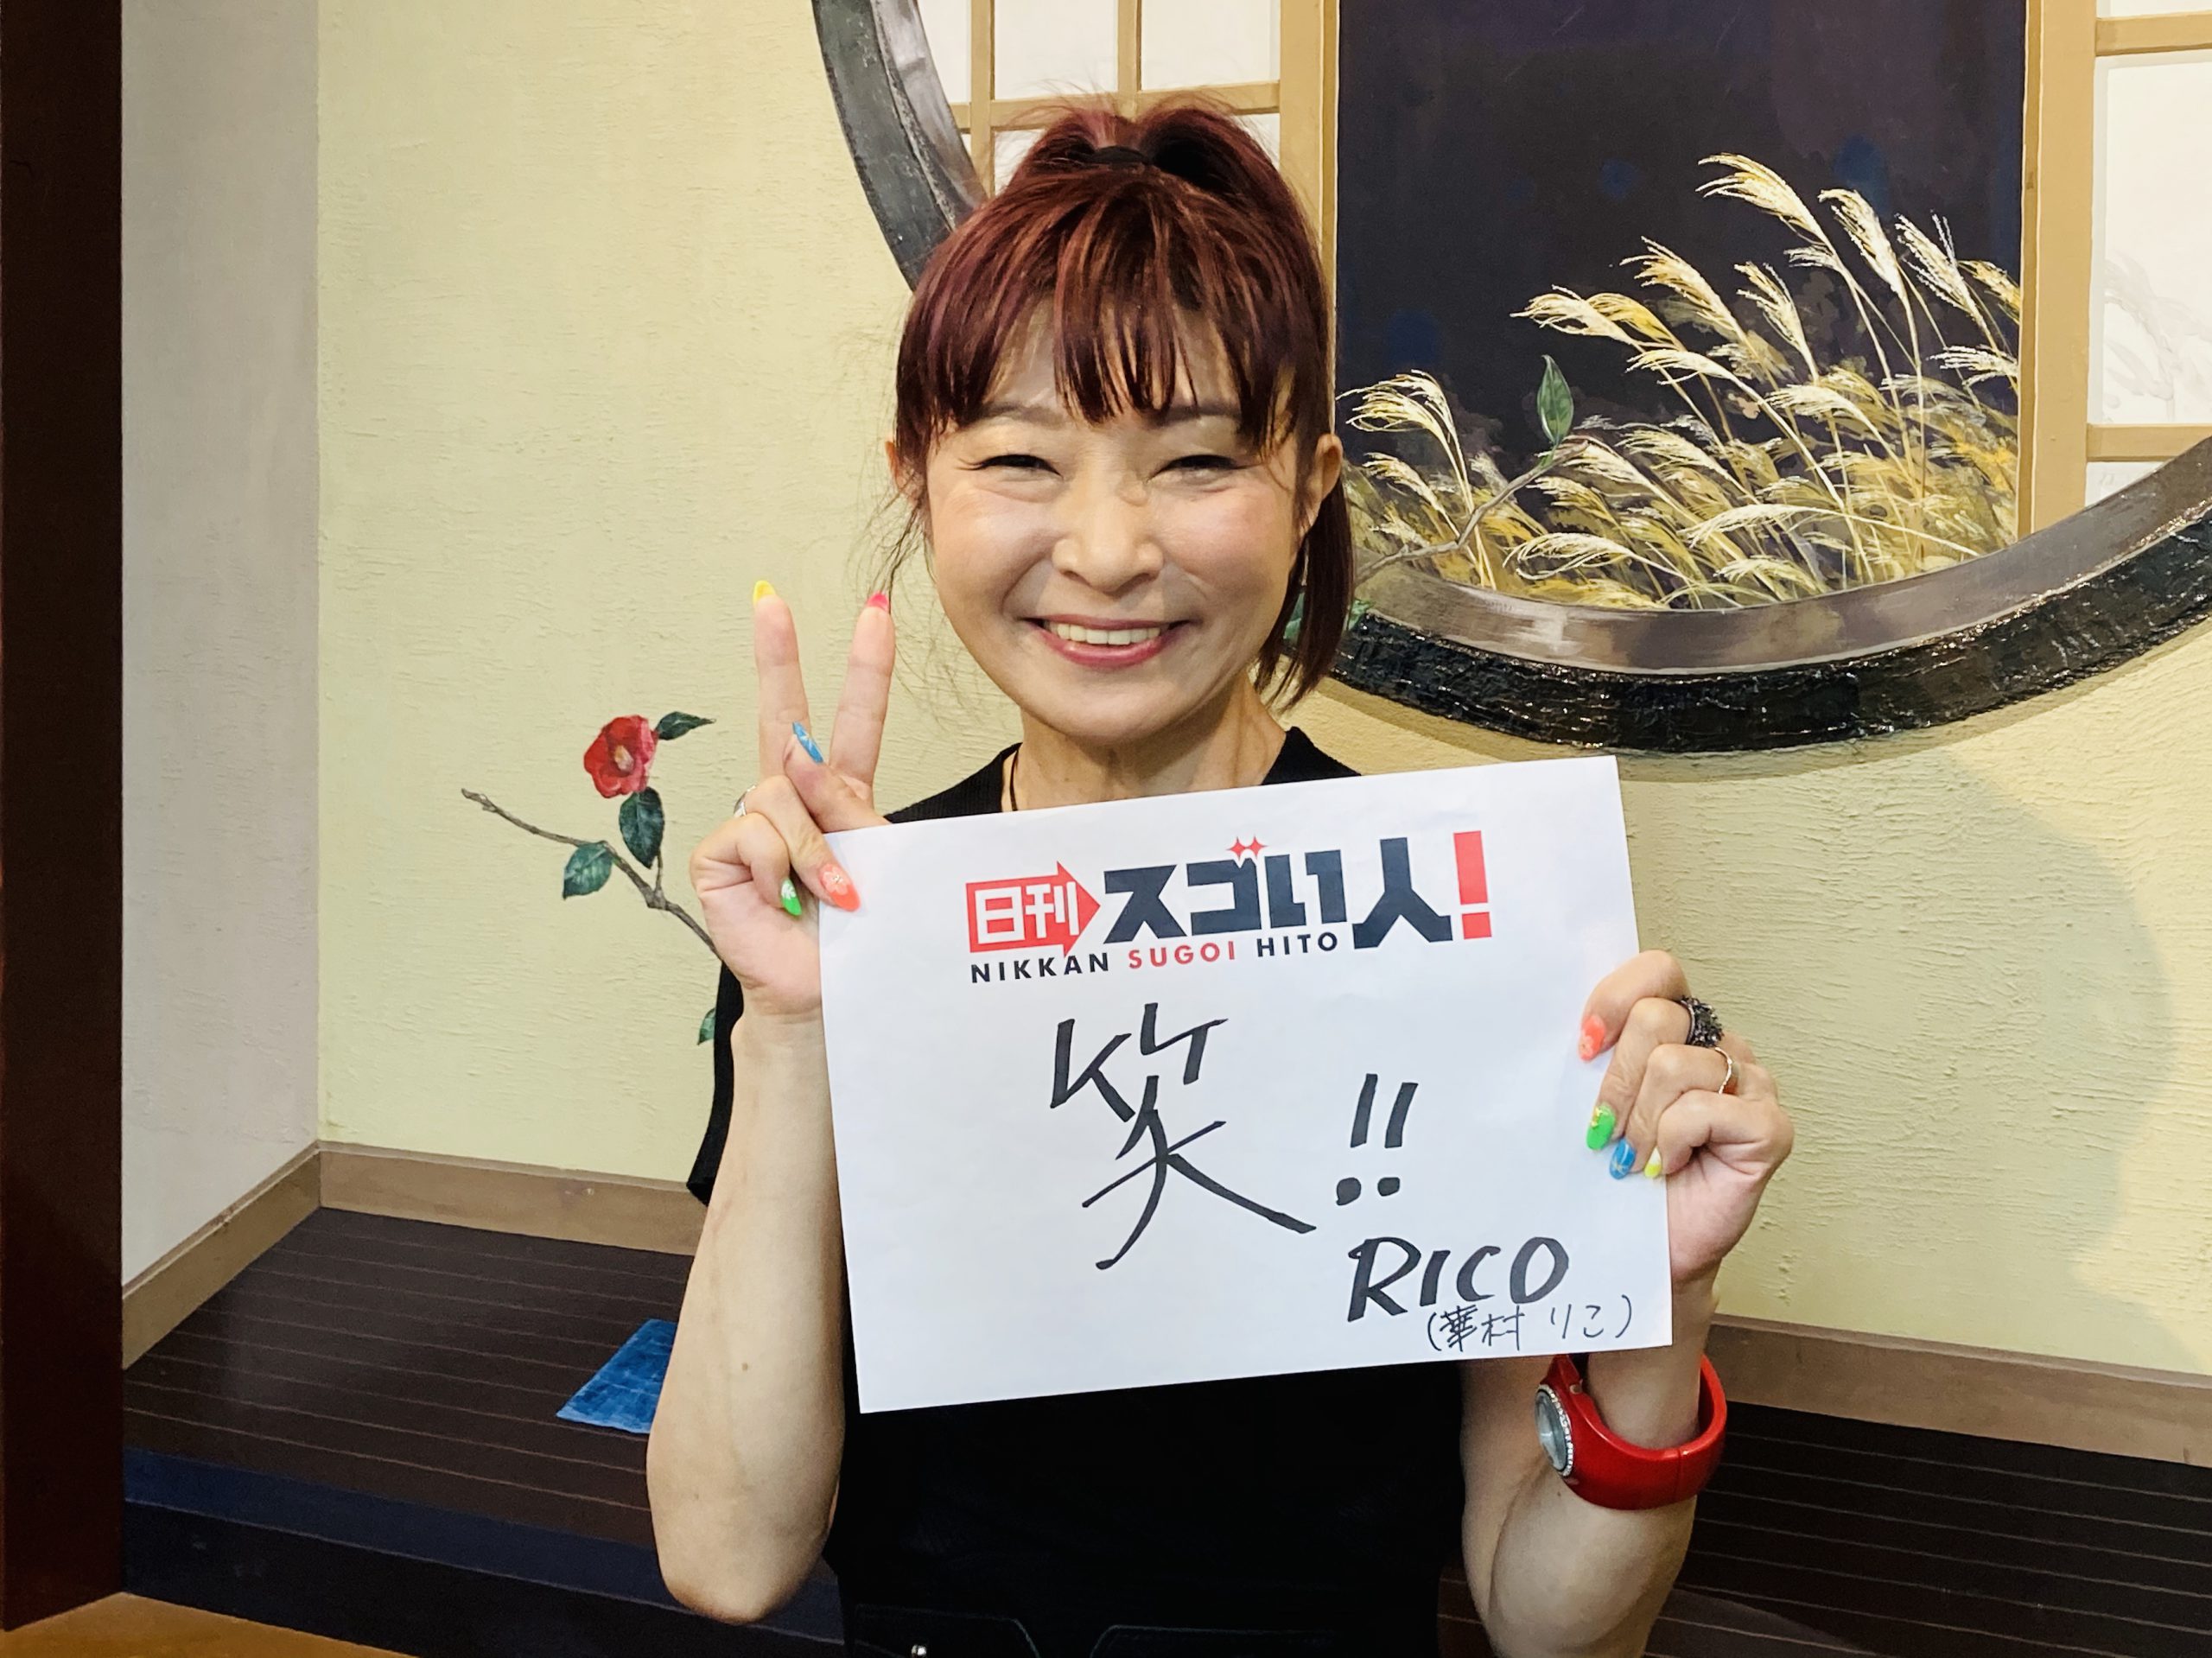 日刊スゴい人!
NIKKAN SUGOI HITO
笑!!
RICO
(華村 りこ)